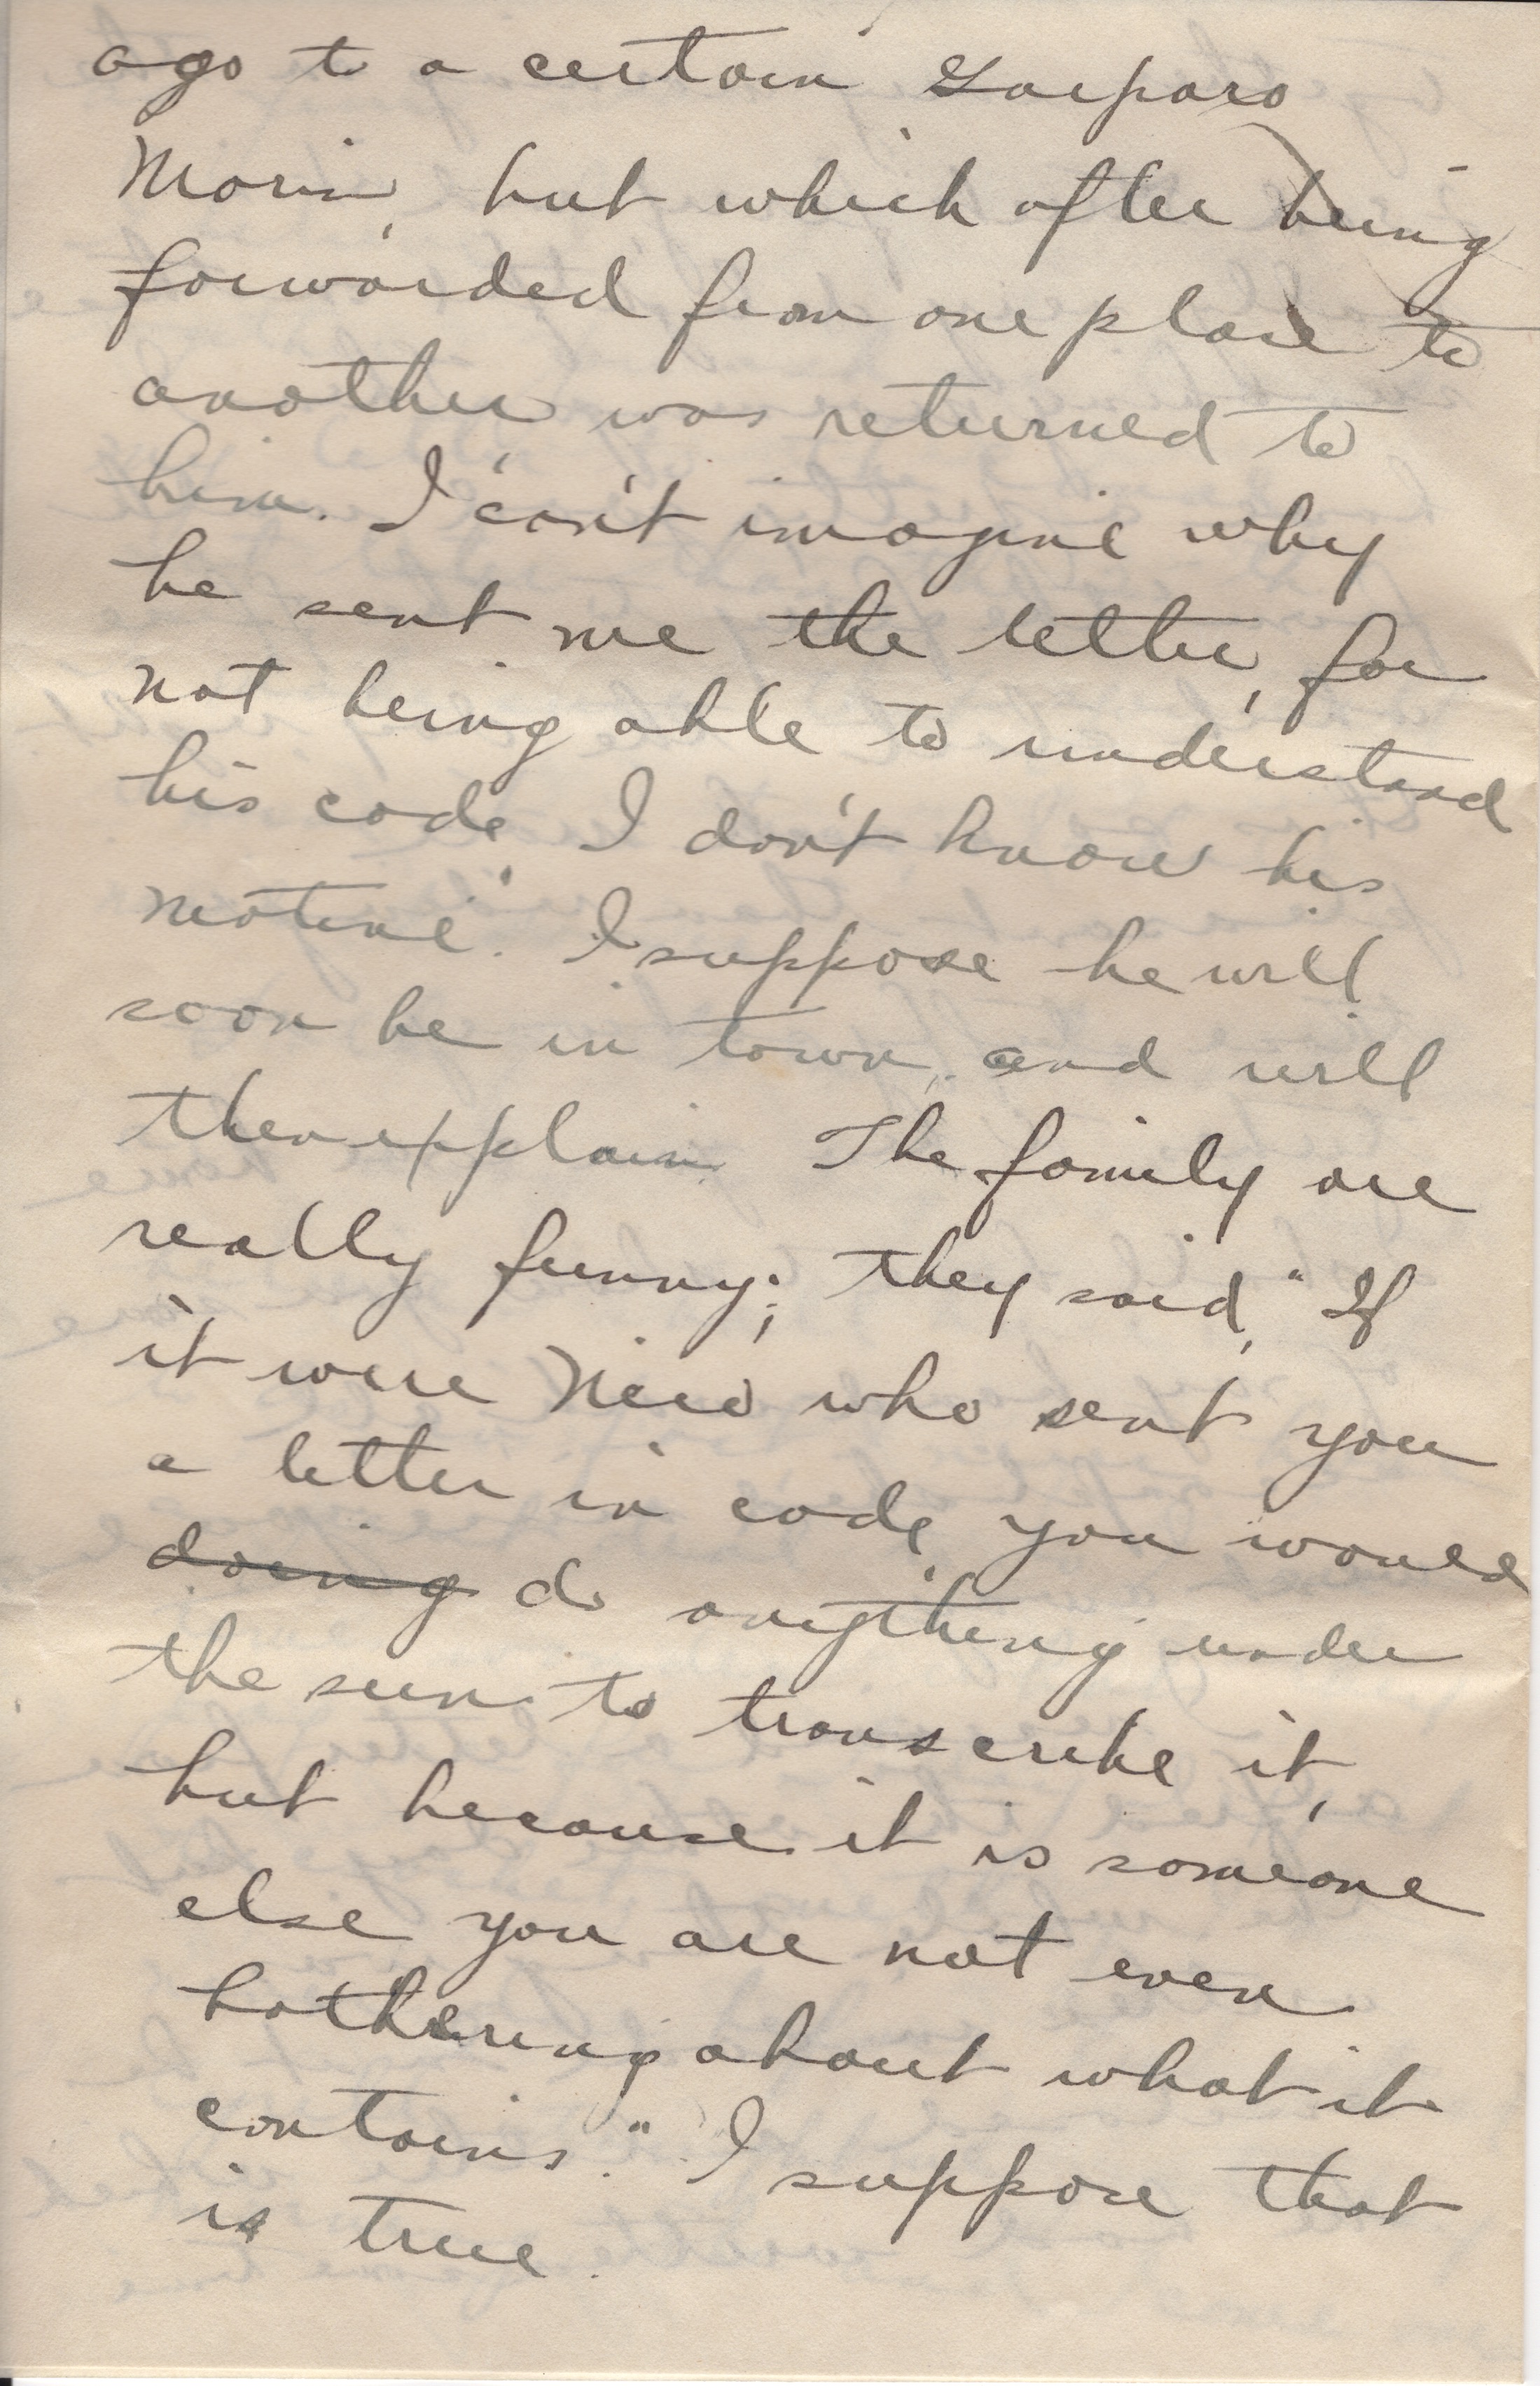 ago to a certain Gasparo
Morin, but which after being
forwarded from one place to
another was returned to
him. I can't imagine why
he sent me the letter, for
not being able to understand
his code, I don't know his
motive. I suppose he will
soon be in town, and will
then explain. The family are
really funny; they said, "If
it were Nino who sent you
a letter in code, you would
doing do anything under
the sun to transcribe it,
but because it is someone
else you are not even
bothering about what it
contains." I suppose that
is true.